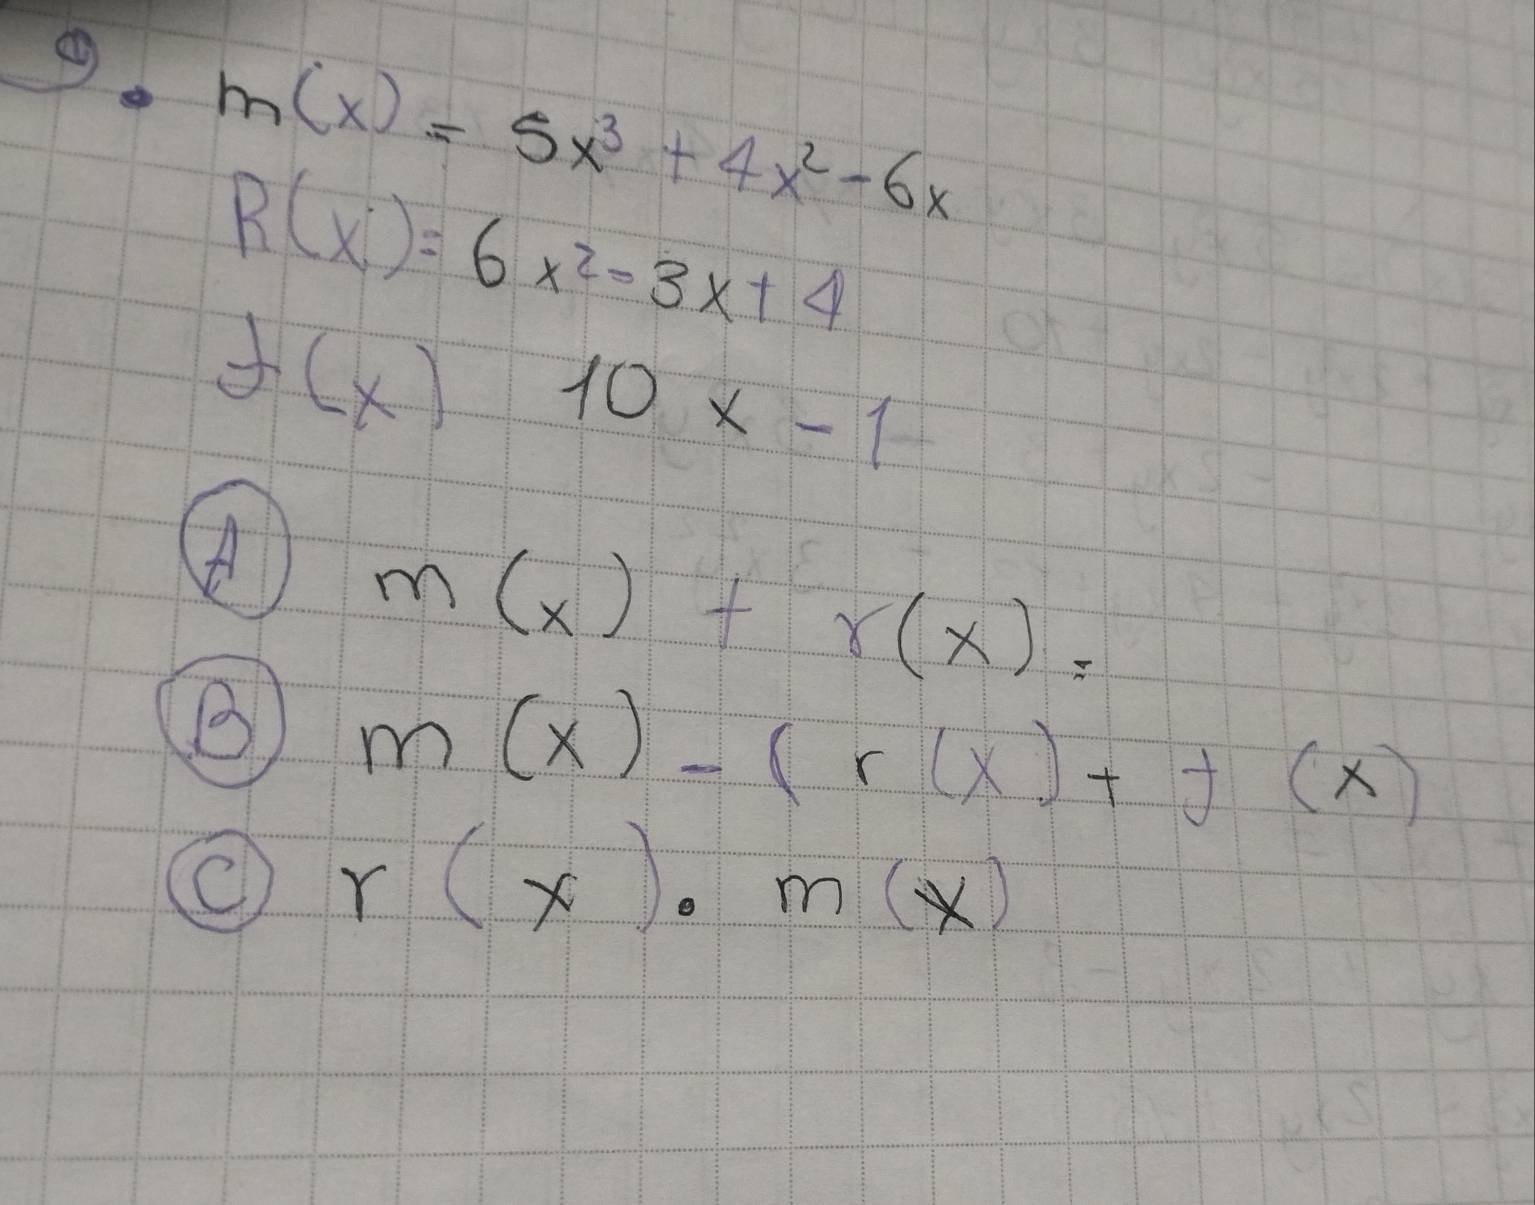 9. m(x) = 5x³ + 4x² - 6x
R(x) = 6x² - 3x + 4
f(x) 10x - 1
A m(x) + r(x) =
B m(x) - (r(x) + f(x)
C r(x) . m(x)